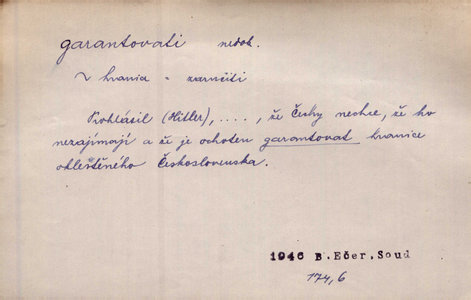 garantovati nedok.
hranice - zaručiti
Prohlásil (Hitler), ...., že Čechy nechce, že ho
nezajímají a že je ochoten garantovat hranice
okleštěného Československa.
1946 B. Ečer, Soud
174,6